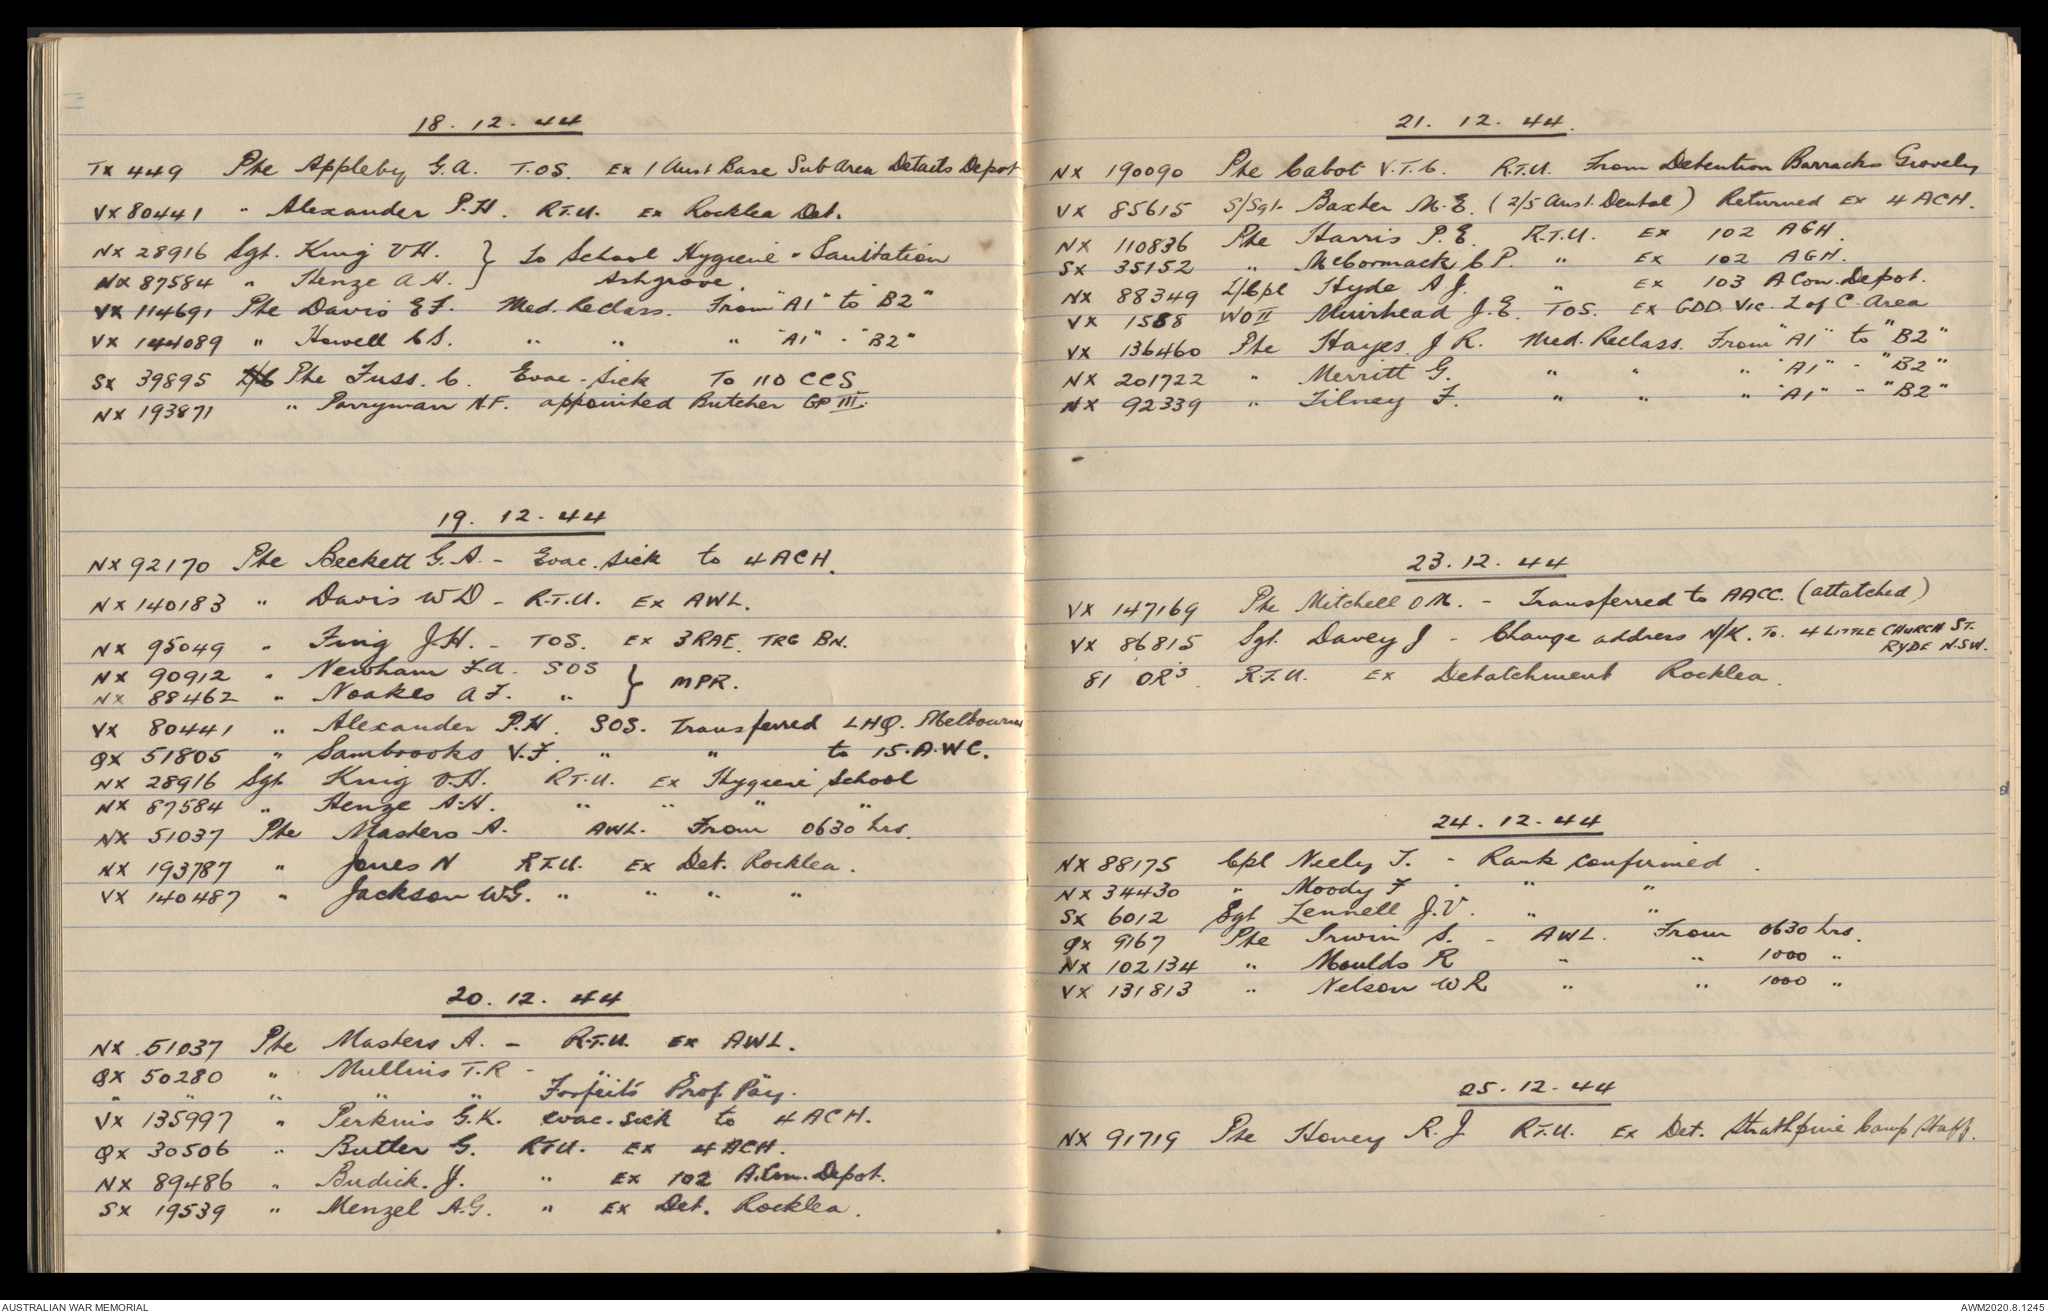 18. 12. 44
TX 449 Pte Appleby G.A. T.O.S. Ex 1 Aust Base Sub Area Details Depot
VX 80441 " Alexander P.H. R.T.U. Ex Rocklea Det.
NX 28916 Sgt. King V.H. } To School Hygiene " Sanitation
NX 87584 " Henze A.H. } Ashgrove.
VX 114691 Pte Davis E.F. Med. Reclass. From "A1" to "B2"
VX 144089 " Howell C.S. " " " "A1" - "B2"
SX 39895 Pte Fuss. C. Evac-sick To 110 CCS
NX 193871 " Parryman N.F. appointed Butcher GP III.
19. 12. 44
NX 92170 Pte Beckett G.A. - Evac. sick to 4 ACH.
NX 140183 " Davis W D - R.T.U. Ex AWL.
NX 95049 " Fing J.H. - TOS. Ex 3 RAE. TRG BN.
NX 90912 " Newham F.A. SOS } MPR.
NX 88462 " Noakes A F. " }
VX 80441 " Alexander P.H. SOS. Transferred LHQ. Melbourne
QX 51805 " Sambrooks V.F. " " to 15.A.WC.
NX 28916 Sgt King V.H. R.T.U. Ex Hygiene School
NX 87584 " Henze A.H. " " " "
NX 51037 Pte Masters A. AWL. From 0630 hrs.
NX 193787 " Jones N R.T.U. Ex Det. Rocklea.
VX 140487 " Jackson W.G. " " " "
20. 12. 44
NX 51037 Pte Masters A. - R.T.U. Ex AWL.
QX 50280 " Mullins T.R - " "
" " " " " Forfeits Prof. Pay.
VX 135997 " Perkins G.K. evac. sick to 4 ACH.
QX 30506 " Butler G. RTU. Ex 4 ACH.
NX 89486 " Budick. J. " Ex 102 A.Con. Depot.
SX 19539 " Menzel A.G. " Ex Det. Rocklea.
21. 12. 44.
NX 190090 Pte Cabot V.T.C. R.T.U. From Detention Barracks Grovely
VX 85615 S/Sgt. Baxter M.E. (2/5 Aust. Dental) Returned Ex 4 ACH.
NX 110836 Pte Harris P.E. R.T.U. Ex 102 AGH.
SX 35152 " McCormack C P. " Ex 102 AGH.
NX 88349 L/Cpl Hyde A J. " Ex 103 A Con. Depot.
VX 1588 WO II Muirhead J.E. TOS. Ex GDD. Vic. L of C. Area
VX 136460 Pte Hayes. J R. Med. Reclass. From "A1" to "B2"
NX 201722 " Merritt G. " " " "A1" - "B2"
NX 92339 " Tilney F. " " " "A1" - "B2"
23. 12. 44
VX 147169 Pte Mitchell O M. - Transferred to AACC. (attatched)
VX 86815 Sgt. Davey J - Change address N/K. To. 4 LITTLE CHURCH ST.
RYDE N.S.W.
81 ORs. R.T.U. Ex Detatchment Rocklea.
24. 12. 44
NX 88175 Cpl Neely T. - Rank confirmed.
NX 34430 " Moody F - " "
SX 6012 Sgt Lennell J.V. " "
QX 9167 Pte Irwin S. - AWL. From 0630 hrs.
NX 102134 " Moulds R " " 1000 "
VX 131813 " Nelson W R " " 1000 "
25. 12. 44
NX 91719 Pte Honey R. J R.T.U. Ex Det. Strathpine Camp Staff.
AUSTRALIAN WAR MEMORIAL
AWM2020.8.1245